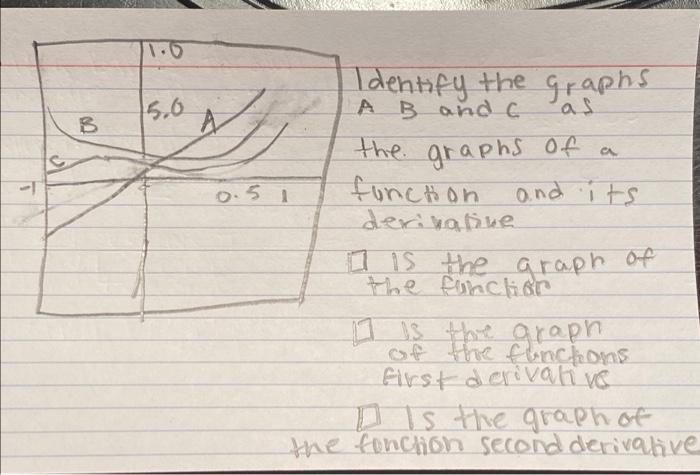 1.0
5.0
A
B
C
-1
0.5 1
Identify the graphs
A B and C as
the graphs of a
function and its
derivative
is the graph of
the function
is the graph
of the functions
first derivative
Is the graph of
the fonction second derivative